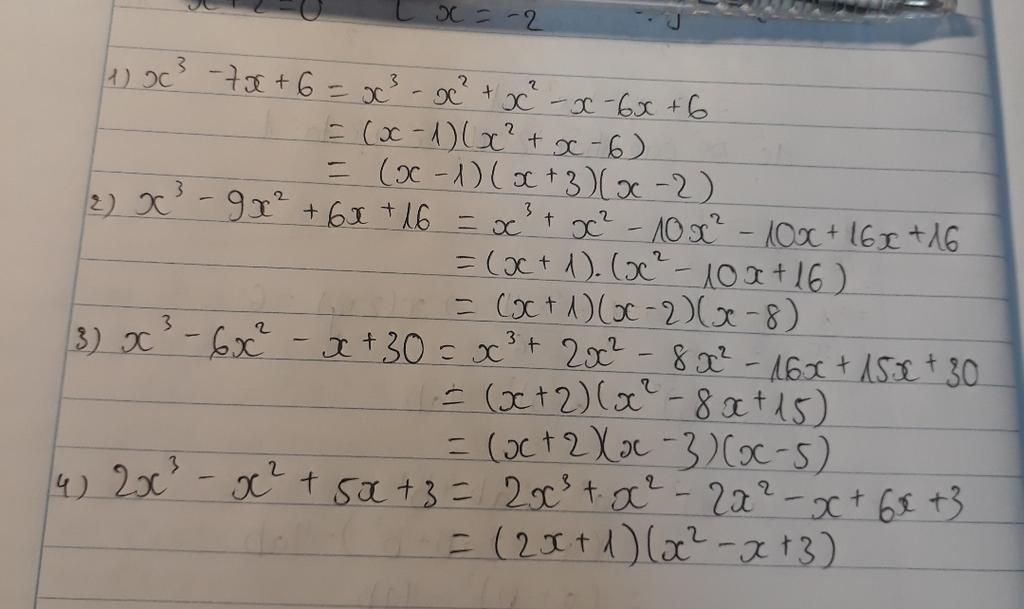 x+2=0 [ x = -2
1) x³ - 7x + 6 = x³ - x² + x² - x - 6x + 6
= (x - 1)(x² + x - 6)
= (x - 1)(x + 3)(x - 2)
2) x³ - 9x² + 6x + 16 = x³ + x² - 10x² - 10x + 16x + 16
= (x + 1).(x² - 10x + 16)
= (x + 1)(x - 2)(x - 8)
3) x³ - 6x² - x + 30 = x³ + 2x² - 8x² - 16x + 15x + 30
= (x + 2)(x² - 8x + 15)
= (x + 2)(x - 3)(x - 5)
4) 2x³ - x² + 5x + 3 = 2x³ + x² - 2x² - x + 6x + 3
= (2x + 1)(x² - x + 3)